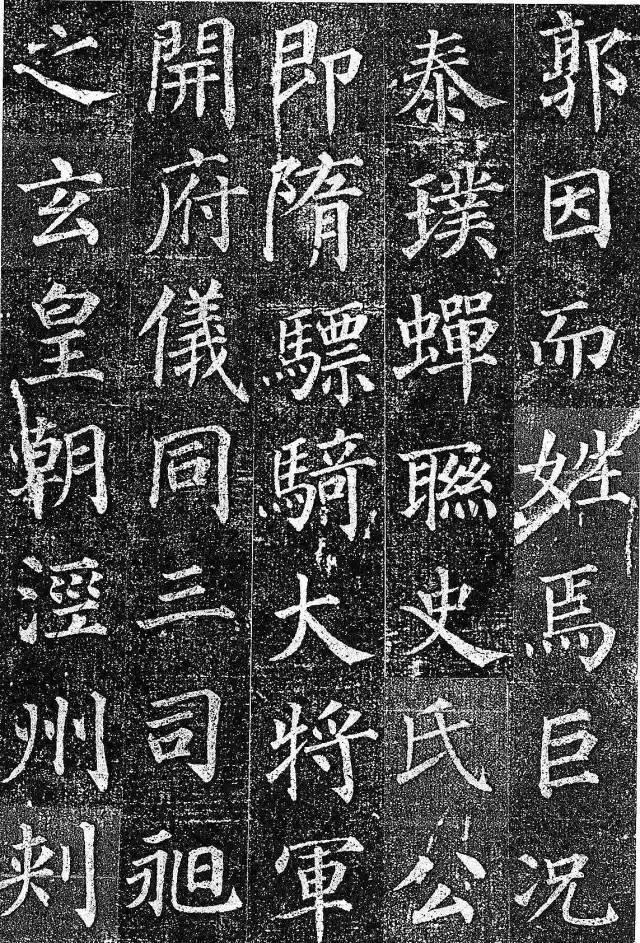 郭因而姓焉巨况
泰璞蟬聯史氏公
即隋驃騎大將軍
開府儀同三司昶
之玄皇朝涇州刾